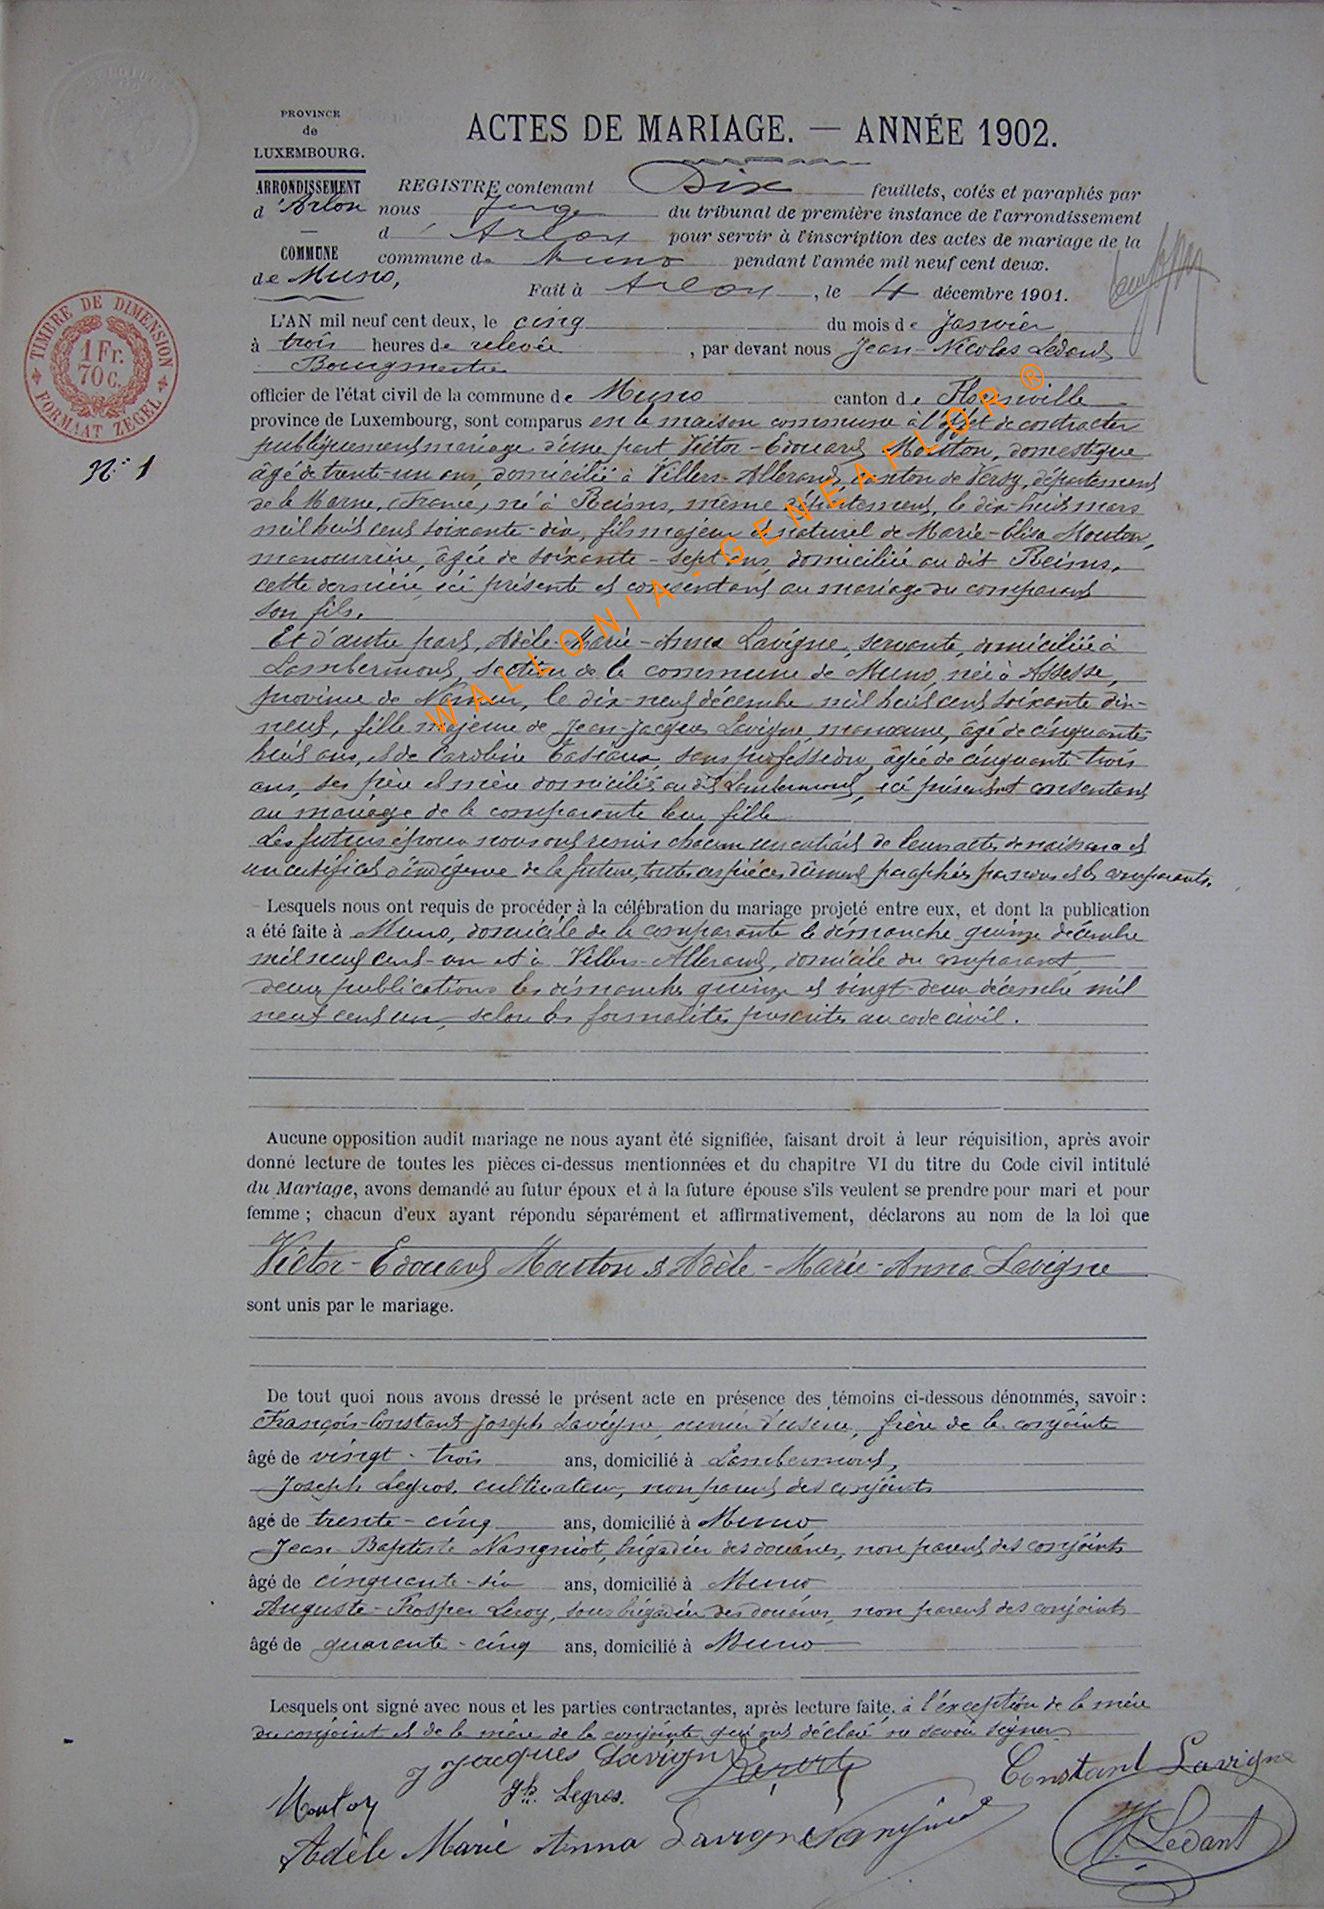 PROVINCE
de
LUXEMBOURG.
ARRONDISSEMENT
d'Arlon
COMMUNE
de Muno,
ACTES DE MARIAGE. — ANNÉE 1902.
REGISTRE contenant Dix feuillets, cotés et paraphés par
nous Juge du tribunal de première instance de l'arrondissement
d'Arlon pour servir à l'inscription des actes de mariage de la
commune de Muno pendant l'année mil neuf cent deux.
Fait à Arlon, le 4 décembre 1901.
TIMBRE DE DIMENSION
1 Fr. 70 c.
FORMAAT ZEGEL
N° 1
L'AN mil neuf cent deux, le cinq du mois de janvier
à trois heures de relevée, par devant nous Jean-Nicolas Ledant
Bourgmestre
officier de l'état civil de la commune de Muno canton de Florenville
province de Luxembourg, sont comparus en la maison commune à l'effet de contracter
publiquement mariage d'une part Victor-Edouard Mouton, domestique
âgé de trente-un ans, domicilié à Villers-Allerand, canton de Verzy, département
de la Marne, (France), né à Reims, même département, le dix-huit mars
mil huit cent soixante-dix, fils majeur et naturel de Marie-Elisa Mouton,
manouvrière, âgée de soixante-sept ans, domiciliée au dit Reims,
cette dernière ici présente et consentant au mariage du comparant
son fils.
Et d'autre part, Adèle-Marie-Anna Lavigne, servante, domiciliée à
Lambermont, section de la commune de Muno, née à Assesse,
province de Namur, le dix-neuf décembre mil huit cent soixante dix-
neuf, fille majeure de Jean-Jacques Lavigne, manœuvre, âgé de cinquante-
huit ans, et de Caroline Tasiaux, sans profession, âgée de cinquante-trois
ans, ses père et mère domiciliés au dit Lambermont, ici présents et consentant
au mariage de la comparante leur fille
Les futurs époux nous ont remis chacun un extrait de leurs actes de naissance et
un certificat d'indigence de la future, toutes ces pièces dûment paraphées par nous et les comparants.
Lesquels nous ont requis de procéder à la célébration du mariage projeté entre eux, et dont la publication
a été faite à Muno, domicile de la comparante le dimanche quinze décembre
mil neuf cent-un et à Villers-Allerand, domicile du comparant
deux publications les dimanches quinze et vingt-deux décembre mil
neuf cent un, selon les formalités prescrites au code civil.
Aucune opposition audit mariage ne nous ayant été signifiée, faisant droit à leur réquisition, après avoir
donné lecture de toutes les pièces ci-dessus mentionnées et du chapitre VI du titre du Code civil intitulé
du Mariage, avons demandé au futur époux et à la future épouse s'ils veulent se prendre pour mari et pour
femme ; chacun d'eux ayant répondu séparément et affirmativement, déclarons au nom de la loi que
Victor-Edouard Mouton & Adèle-Marie-Anna Lavigne
sont unis par le mariage.
De tout quoi nous avons dressé le présent acte en présence des témoins ci-dessous dénommés, savoir :
François-Constant-Joseph Lavigne, ouvrier d'usine, frère de la conjointe
âgé de vingt-trois ans, domicilié à Lambermont,
Joseph Legros, cultivateur, non parent des conjoints
âgé de trente-cinq ans, domicilié à Muno
Jean-Baptiste Nangniot, brigadier des douanes, non parent des conjoints
âgé de cinquante-six ans, domicilié à Muno
Auguste-Prosper Leroy, sous brigadier des douanes, non parent des conjoints
âgé de quarante-cinq ans, domicilié à Muno
Lesquels ont signé avec nous et les parties contractantes, après lecture faite, à l'exception de la mère
du conjoint et de la mère de la conjointe qui ont déclaré ne savoir signer
J Jacques Lavigne
Constant Lavigne
Mouton
Jh. Legros.
Adèle Marie Anna Lavigne
Nangniot
N. Ledant
WALLONIA-GENEAFLOR ®